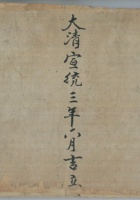 大清宣統三年八月吉立